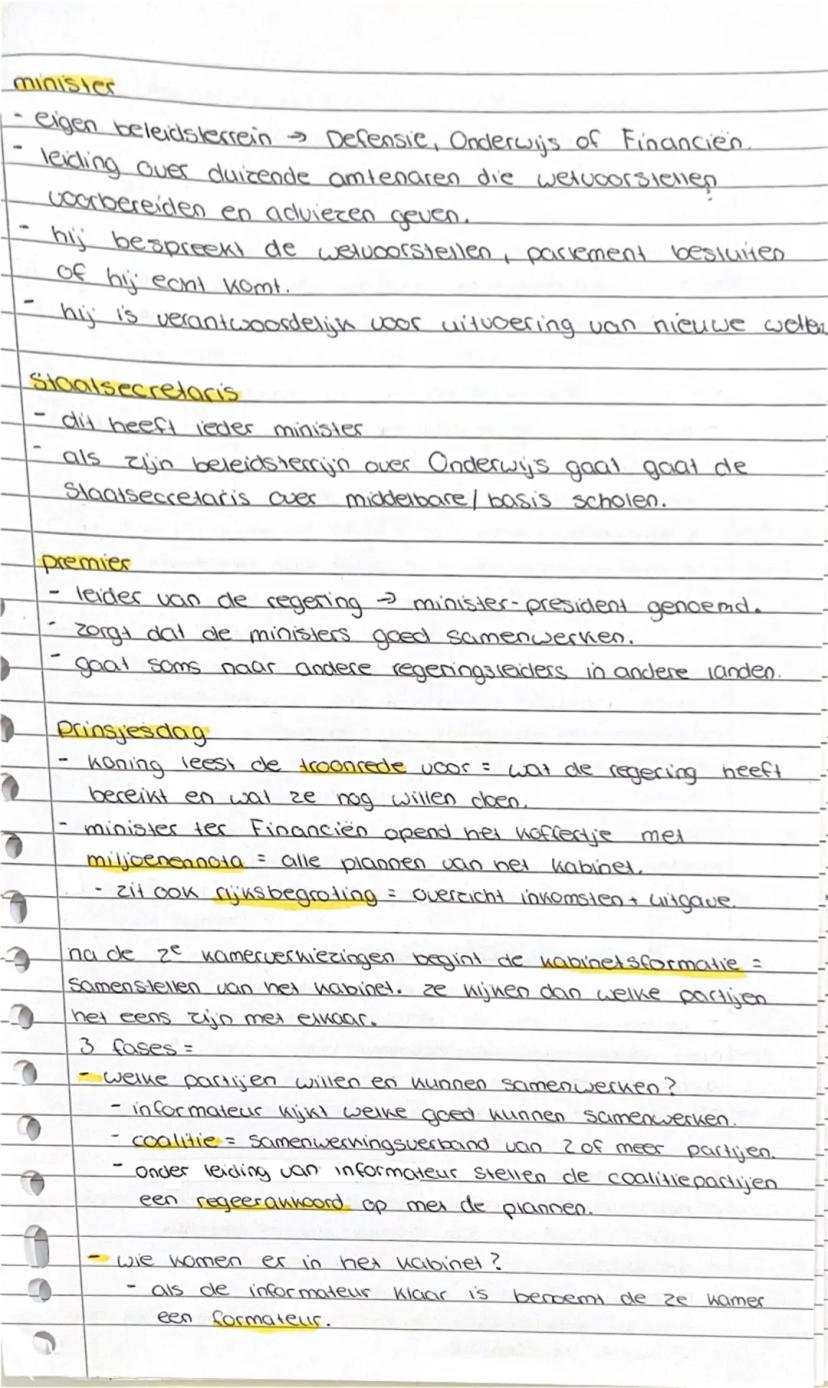 minister
- eigen beleidsterrein → Defensie, Onderwijs of Financiën.
- leiding over duizende amtenaren die wetvoorstellen
voorbereiden en adviezen geven.
- hij bespreekt de wetvoorstellen, parlement besluiten
of hij echt komt.
- hij is verantwoordelijk voor uitvoering van nieuwe wetten.
Staatsecretaris
- dit heeft ieder minister
- als zijn beleidsterrijn over Onderwijs gaat gaat de
Staatsecretaris over middelbare/basis scholen.
premier
- leider van de regering → minister-president genoemd.
- zorgt dat de ministers goed samenwerken.
- gaat soms naar andere regeringsleiders in andere landen.
Prinsjesdag
- koning leest de troonrede voor = wat de regering heeft
bereikt en wat ze nog willen doen.
- minister ter Financiën opend het koffertje met
miljoenennota = alle plannen van het kabinet.
- zit ook rijksbegroting = overzicht inkomsten + uitgave.
na de 2e kamerverkiezingen begint de kabinetsformatie =
samenstellen van het kabinet. ze kijken dan welke partijen
het eens zijn met elkaar.
3 fases =
- welke partijen willen en kunnen samenwerken?
- informateur kijkt welke goed kunnen samenwerken.
- coalitie = samenwerkingsverband van 2 of meer partijen.
- onder leiding van informateur stellen de coalitiepartijen
een regeerakkoord op met de plannen.
- wie komen er in het kabinet?
- als de informateur klaar is benoemt de 2e kamer
een formateur.